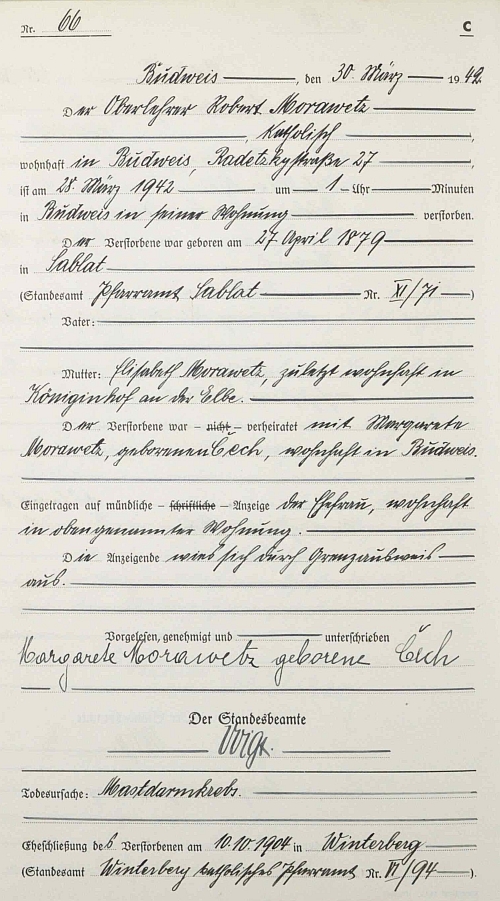 Nr. 66 C
Budweis, den 30. März 1942
Der Oberlehrer Robert Morawetz
, katholisch,
wohnhaft in Budweis, Radetzkystraße 27,
ist am 28. März 1942 um 1 Uhr Minuten
in Budweis in seiner Wohnung verstorben.
Der Verstorbene war geboren am 27 April 1879
in Sablat
(Standesamt Pfarramt Sablat Nr. XI/71)
Vater:
Mutter: Elisabeth Morawetz, zuletzt wohnhaft in
Königinhof an der Elbe.
Der Verstorbene war – nicht – verheiratet mit Margarete
Morawetz, geborenen Čech, wohnhaft in Budweis.
Eingetragen auf mündliche – schriftliche – Anzeige der Ehefrau, wohnhaft
in obengenannter Wohnung.
Die Anzeigende wies sich durch Grenzausweis
aus.
Vorgelesen, genehmigt und unterschrieben
Margarete Morawetz geborene Čech
Der Standesbeamte
Voigt.
Todesursache: Mastdarmkrebs.
Eheschließung des Verstorbenen am 10.10.1904 in Winterberg
(Standesamt Winterberg katholisches Pfarramt Nr. VI/94).